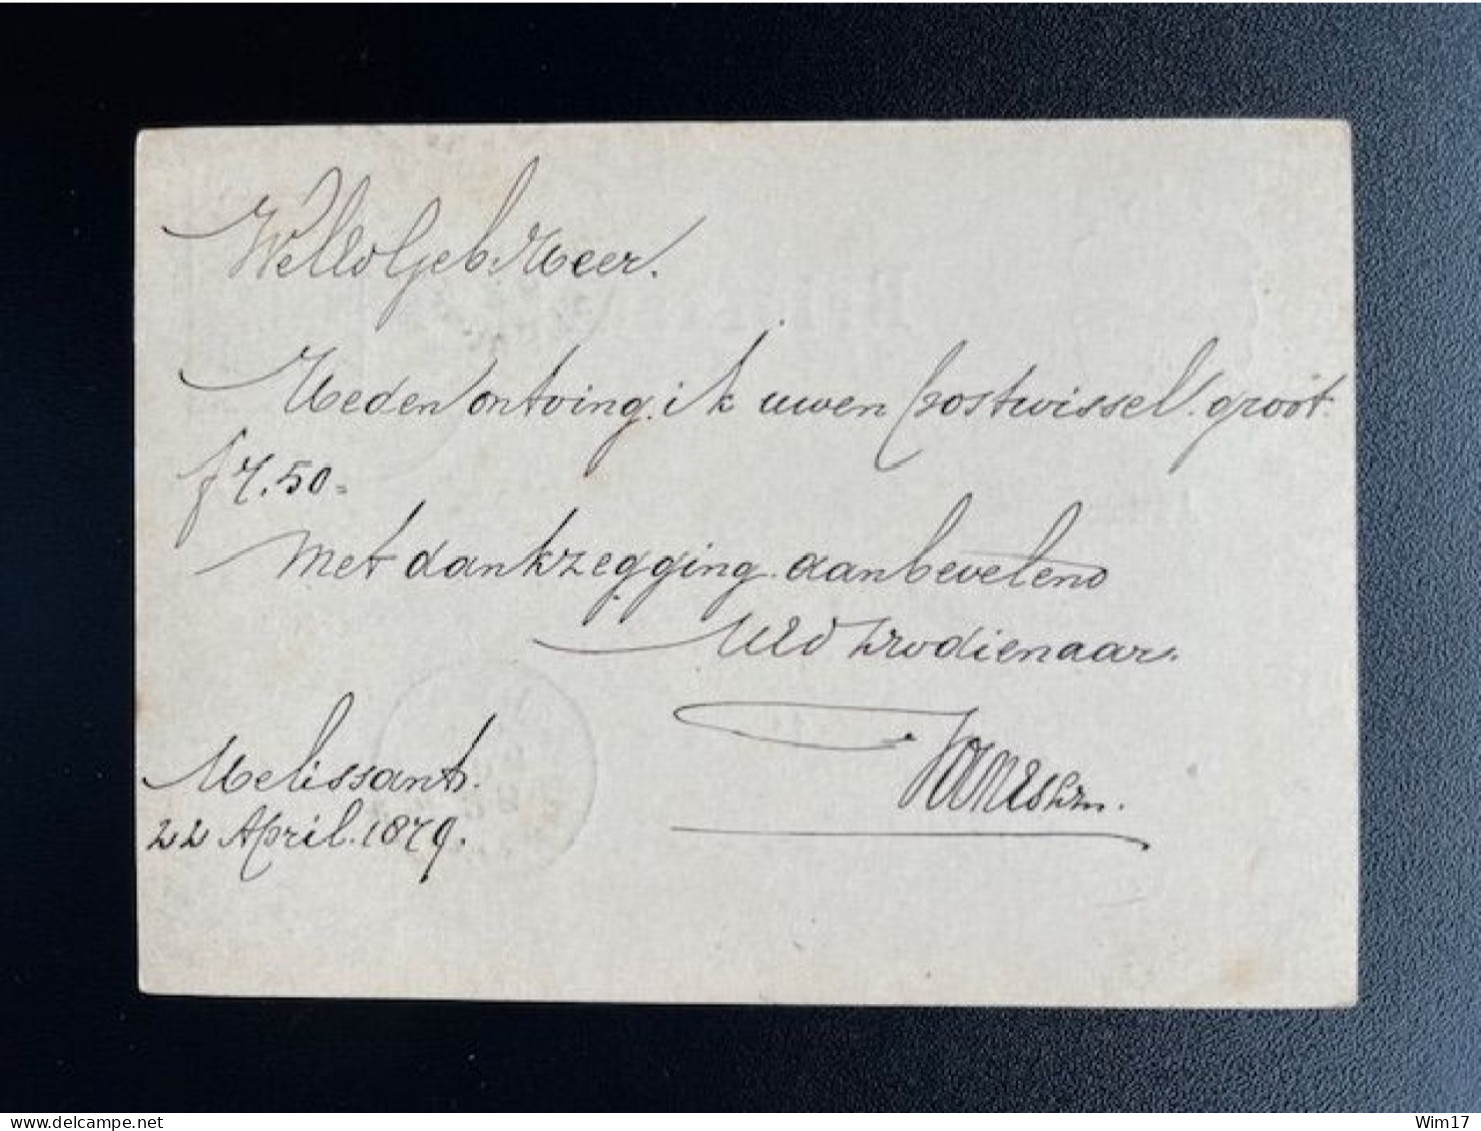 WelEdGeb Heer.
Heden ontving ik uwen postwissel groot
f 7.50 =
Met dankzegging aanbevelend
UEd dwdienaar.
Melissant.
22 April. 1879.
delcampe.net
Wim17